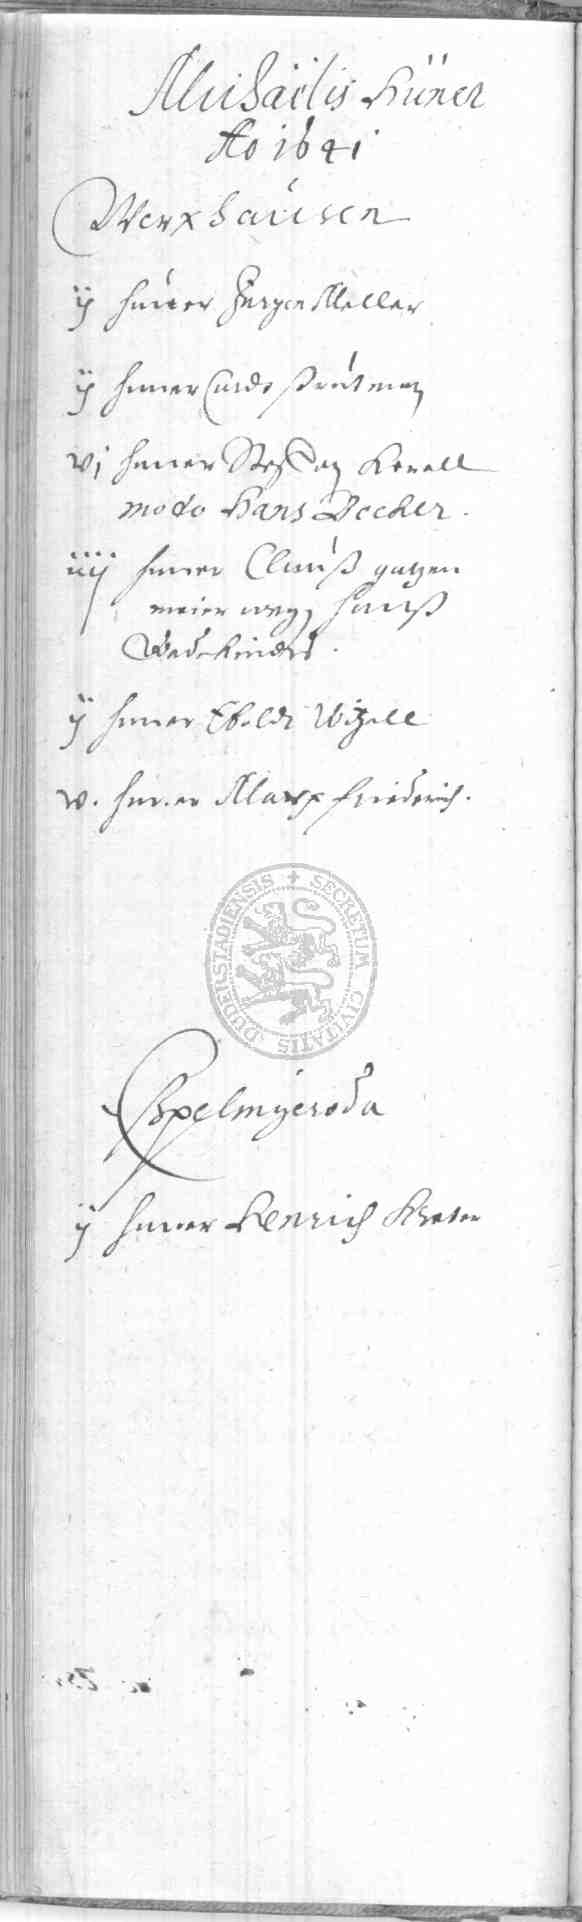 Michaëlis Hüner
Ao 1641
Werxhausen
ij Huner Jurgen Meller
ij Huner Curdt Strutman
vj Huner Steffan Konell
modo Hans Becker.
iiij Huner Clauß gatzen
meier weg Hanß
Wedekindts.
ij Huner Ebeldt Witzell
v. Huner Marx friederich.
SECRETUM CIVITATIS DUDERSTADIENSIS
Espelingeroda
ij Huner Henrich